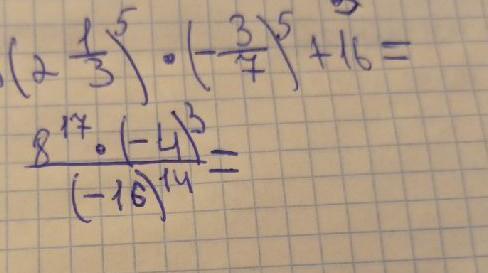 (2 1/3)^5 · (-3/7)^5 + 16 =
8^17 · (-4)^3 / (-16)^14 =